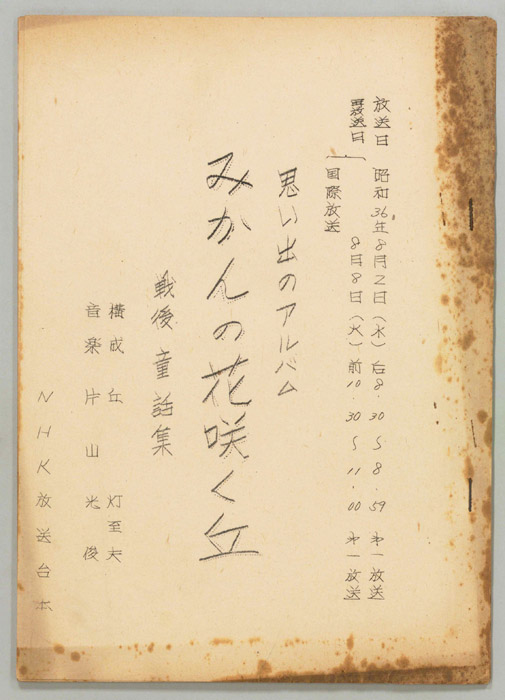 放送日 昭和36年8月2日（水）后8.30〜8.59 第一放送
再放送日 8月8日（火）前10.30〜11.00 第一放送
国際放送
思い出のアルバム
みかんの花咲く丘
戦後童謡集
構成 丘灯至夫
音楽 片山光俊
NHK放送台本